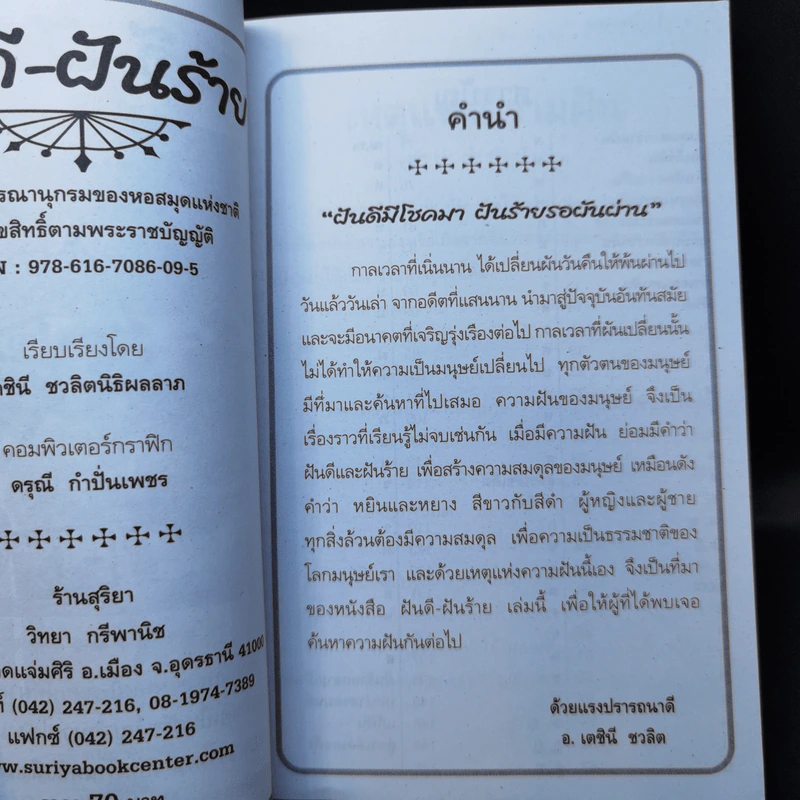 ดี-ฝันร้าย
รณานุกรมของหอสมุดแห่งชาติ
ขสิทธิ์ตามพระราชบัญญัติ
: 978-616-7086-09-5
เรียบเรียงโดย
ตชินี ชวลิตนิธิผลลาภ
คอมพิวเตอร์กราฟิก
ดรุณี กำปั่นเพชร
ร้านสุริยา
วิทยา กรีพานิช
ดแจ่มศิริ อ.เมือง จ.อุดรธานี 41000
(042) 247-216, 08-1974-7389
แฟกซ์ (042) 247-216
ww.suriyabookcenter.com
70 บาท
คำนำ
“ฝันดีมีโชคมา ฝันร้ายรอผันผ่าน”
กาลเวลาที่เนิ่นนาน ได้เปลี่ยนผันวันคืนให้พ้นผ่านไป
วันแล้ววันเล่า จากอดีตที่แสนนาน นำมาสู่ปัจจุบันอันทันสมัย
และจะมีอนาคตที่เจริญรุ่งเรืองต่อไป กาลเวลาที่ผันเปลี่ยนนั้น
ไม่ได้ทำให้ความเป็นมนุษย์เปลี่ยนไป ทุกตัวตนของมนุษย์
มีที่มาและค้นหาที่ไปเสมอ ความฝันของมนุษย์ จึงเป็น
เรื่องราวที่เรียนรู้ไม่จบเช่นกัน เมื่อมีความฝัน ย่อมมีคำว่า
ฝันดีและฝันร้าย เพื่อสร้างความสมดุลของมนุษย์ เหมือนดัง
คำว่า หยินและหยาง สีขาวกับสีดำ ผู้หญิงและผู้ชาย
ทุกสิ่งล้วนต้องมีความสมดุล เพื่อความเป็นธรรมชาติของ
โลกมนุษย์เรา และด้วยเหตุแห่งความฝันนี้เอง จึงเป็นที่มา
ของหนังสือ ฝันดี-ฝันร้าย เล่มนี้ เพื่อให้ผู้ที่ได้พบเจอ
ค้นหาความฝันกันต่อไป
ด้วยแรงปรารถนาดี
อ. เตชินี ชวลิต